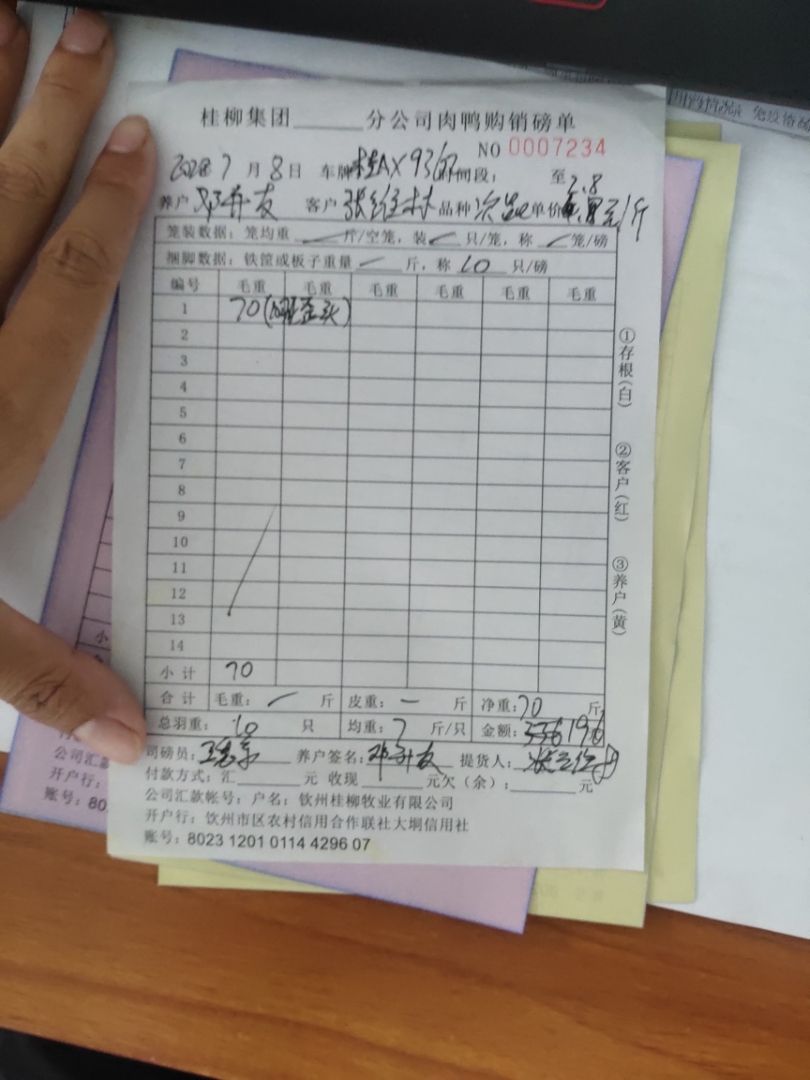 桂柳集团______分公司肉鸭购销磅单
NO 0007234
7月8日 车牌 时间段: 至
2.8
养户 客户 张 品种 次 单价 元/斤
笼装数据: 笼均重 斤/空笼, 装 只/笼, 称 笼/磅
捆脚数据: 铁筐或板子重量 — 斤, 称 10 只/磅
编号 毛重 毛重 毛重 毛重 毛重 毛重
1 70(歪头)
2
3
4
5
6
7
8
9
10
11
12
13
14
小计 70
合计 毛重: 斤 皮重: — 斤 净重: 70 斤
总羽重: 10 只 均重: 7 斤/只 金额: 196
司磅员: 养户签名: 提货人:
付款方式: 汇______元 收现______元欠(余):______元
公司汇款帐号: 户名: 钦州桂柳牧业有限公司
开户行: 钦州市区农村信用合作联社大垌信用社
账号: 8023 1201 0114 4296 07
①存根(白)
②客户(红)
③养户(黄)
公司汇款
开户行:
账号: 80